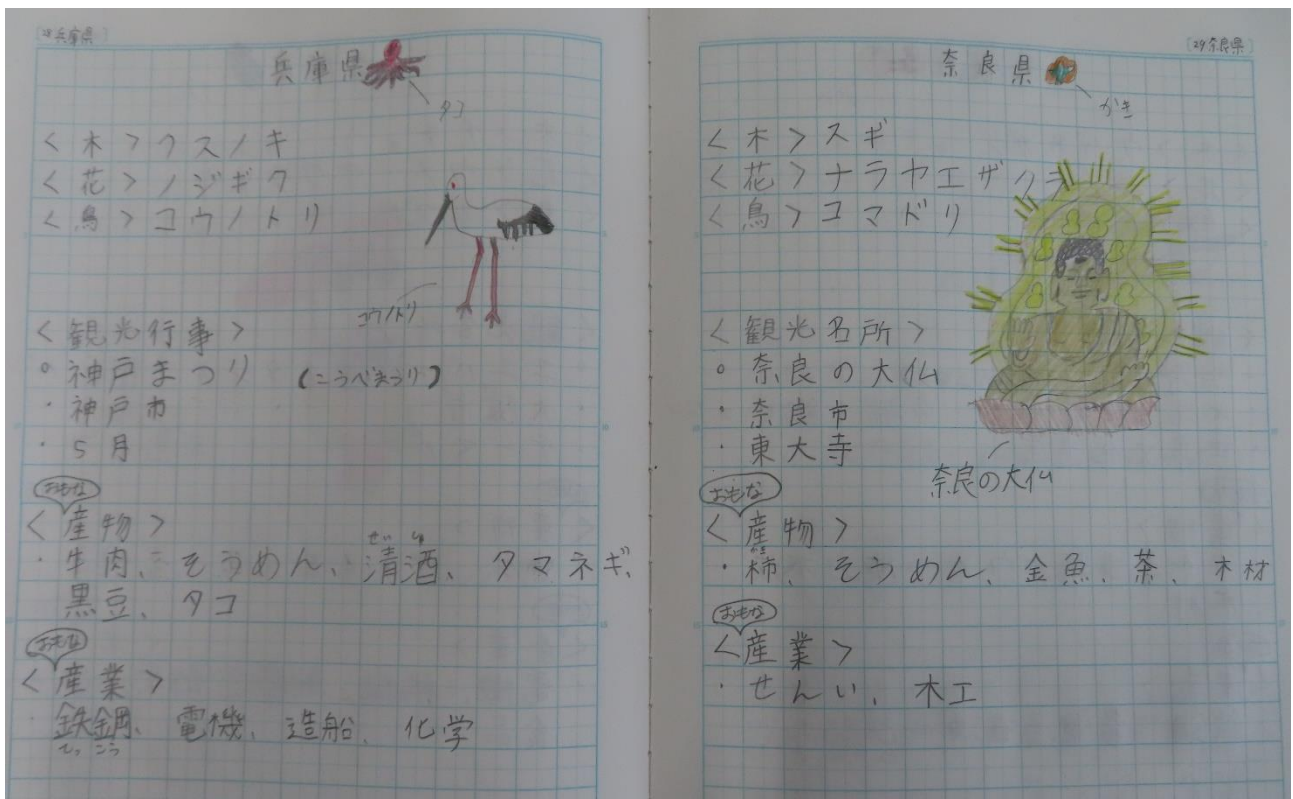 (28兵庫県)
兵庫県
タコ
<木>クスノキ
<花>ノジギク
<鳥>コウノトリ
コウノトリ
<観光行事>
○神戸まつり (こうべまつり)
・神戸市
・5月
おもな
<産物>
せい しゅ
・牛肉、そうめん、清酒、タマネギ、
黒豆、タコ
おもな
<産業>
・鉄鋼、電機、造船、化学
てっ こう
(29奈良県)
奈良県
かき
<木>スギ
<花>ナラヤエザクラ
<鳥>コマドリ
<観光名所>
○奈良の大仏
・奈良市
・東大寺
奈良の大仏
おもな
<産物>
かき
・柿、そうめん、金魚、茶、木材
おもな
<産業>
・せんい、木工